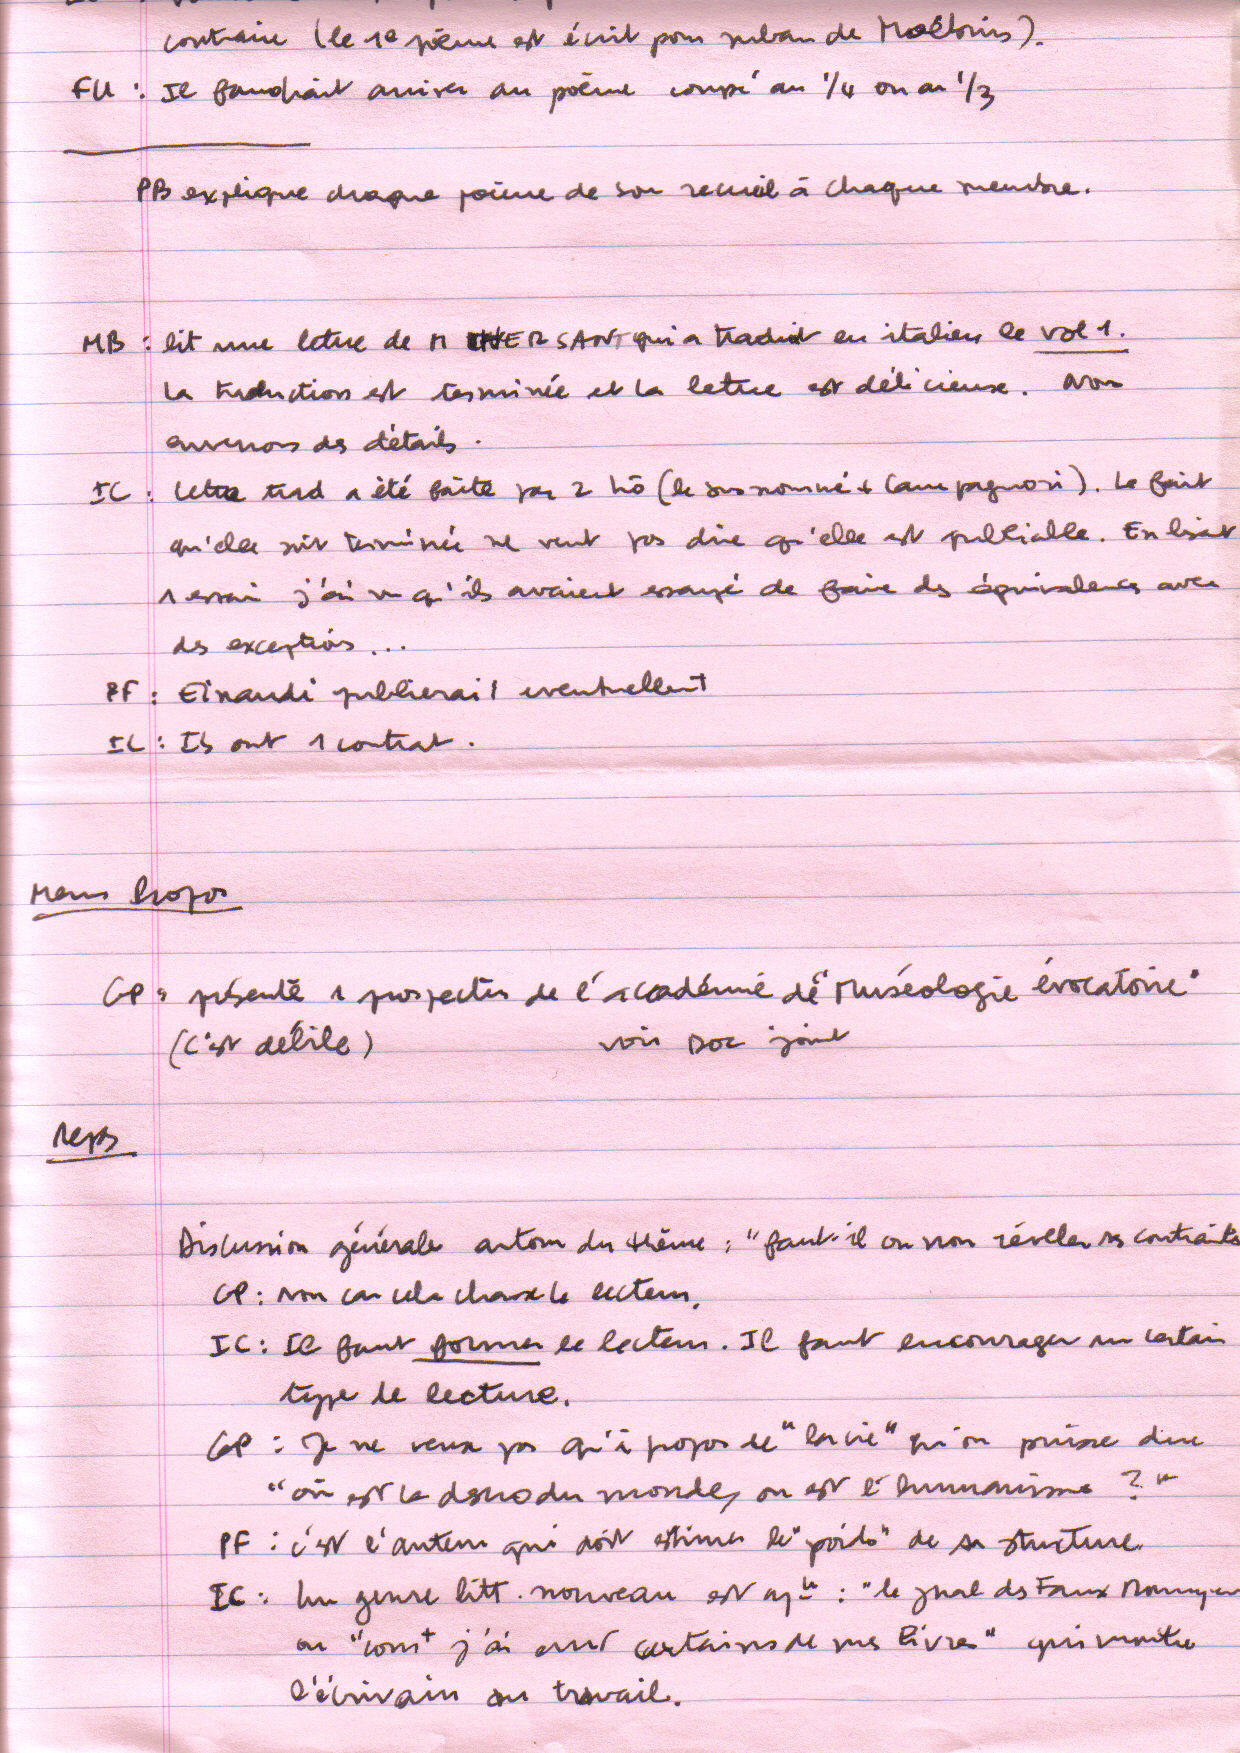 contraire (le 1e poème est écrit pour ruban de Moebius).
FU : Il faudrait arriver au poème coupé au 1/4 ou au 1/3
PB explique chaque poème de son recueil à chaque membre.
MB : lit une lettre de M HERSANT qui a traduit en italien le vol 1.
La traduction est terminée et la lettre est délicieuse. Nous
enverrons des détails.
IC : Cette trad a été faite par 2 hô (le susnommé + Campagnosi). Le fait
qu'elle soit terminée ne veut pas dire qu'elle est publiable. En lisant
1 essai j'ai vu qu'ils avaient essayé de faire des équivalences avec
des exceptions...
PF : Einaudi publierait eventuellent
IC : Ils ont 1 contrat.
Menus Propos
GP : présente 1 prospectus de l'académie de "Muséologie évocatoire"
(C'est débile) voir Doc joint
Reps
Discussion générale autour du thème : "faut-il ou non révéler ses contraintes
GP : Non car cela chasse le lecteur.
IC : Il faut former le lecteur. Il faut encourager un certain
type de lecture.
GP : Je ne veux pas qu'à propos de "la vie" qu'on puisse dire
"où est la desc du monde, ou est l'humanisme ?"
PF : c'est l'auteur qui doit estimer le "poids" de sa structure.
IC : Un genre litt. nouveau est : "le jnal des Faux Monnayeurs
ou "comt j'ai écrit certains de mes livres" qui montre
l'écrivain au travail.